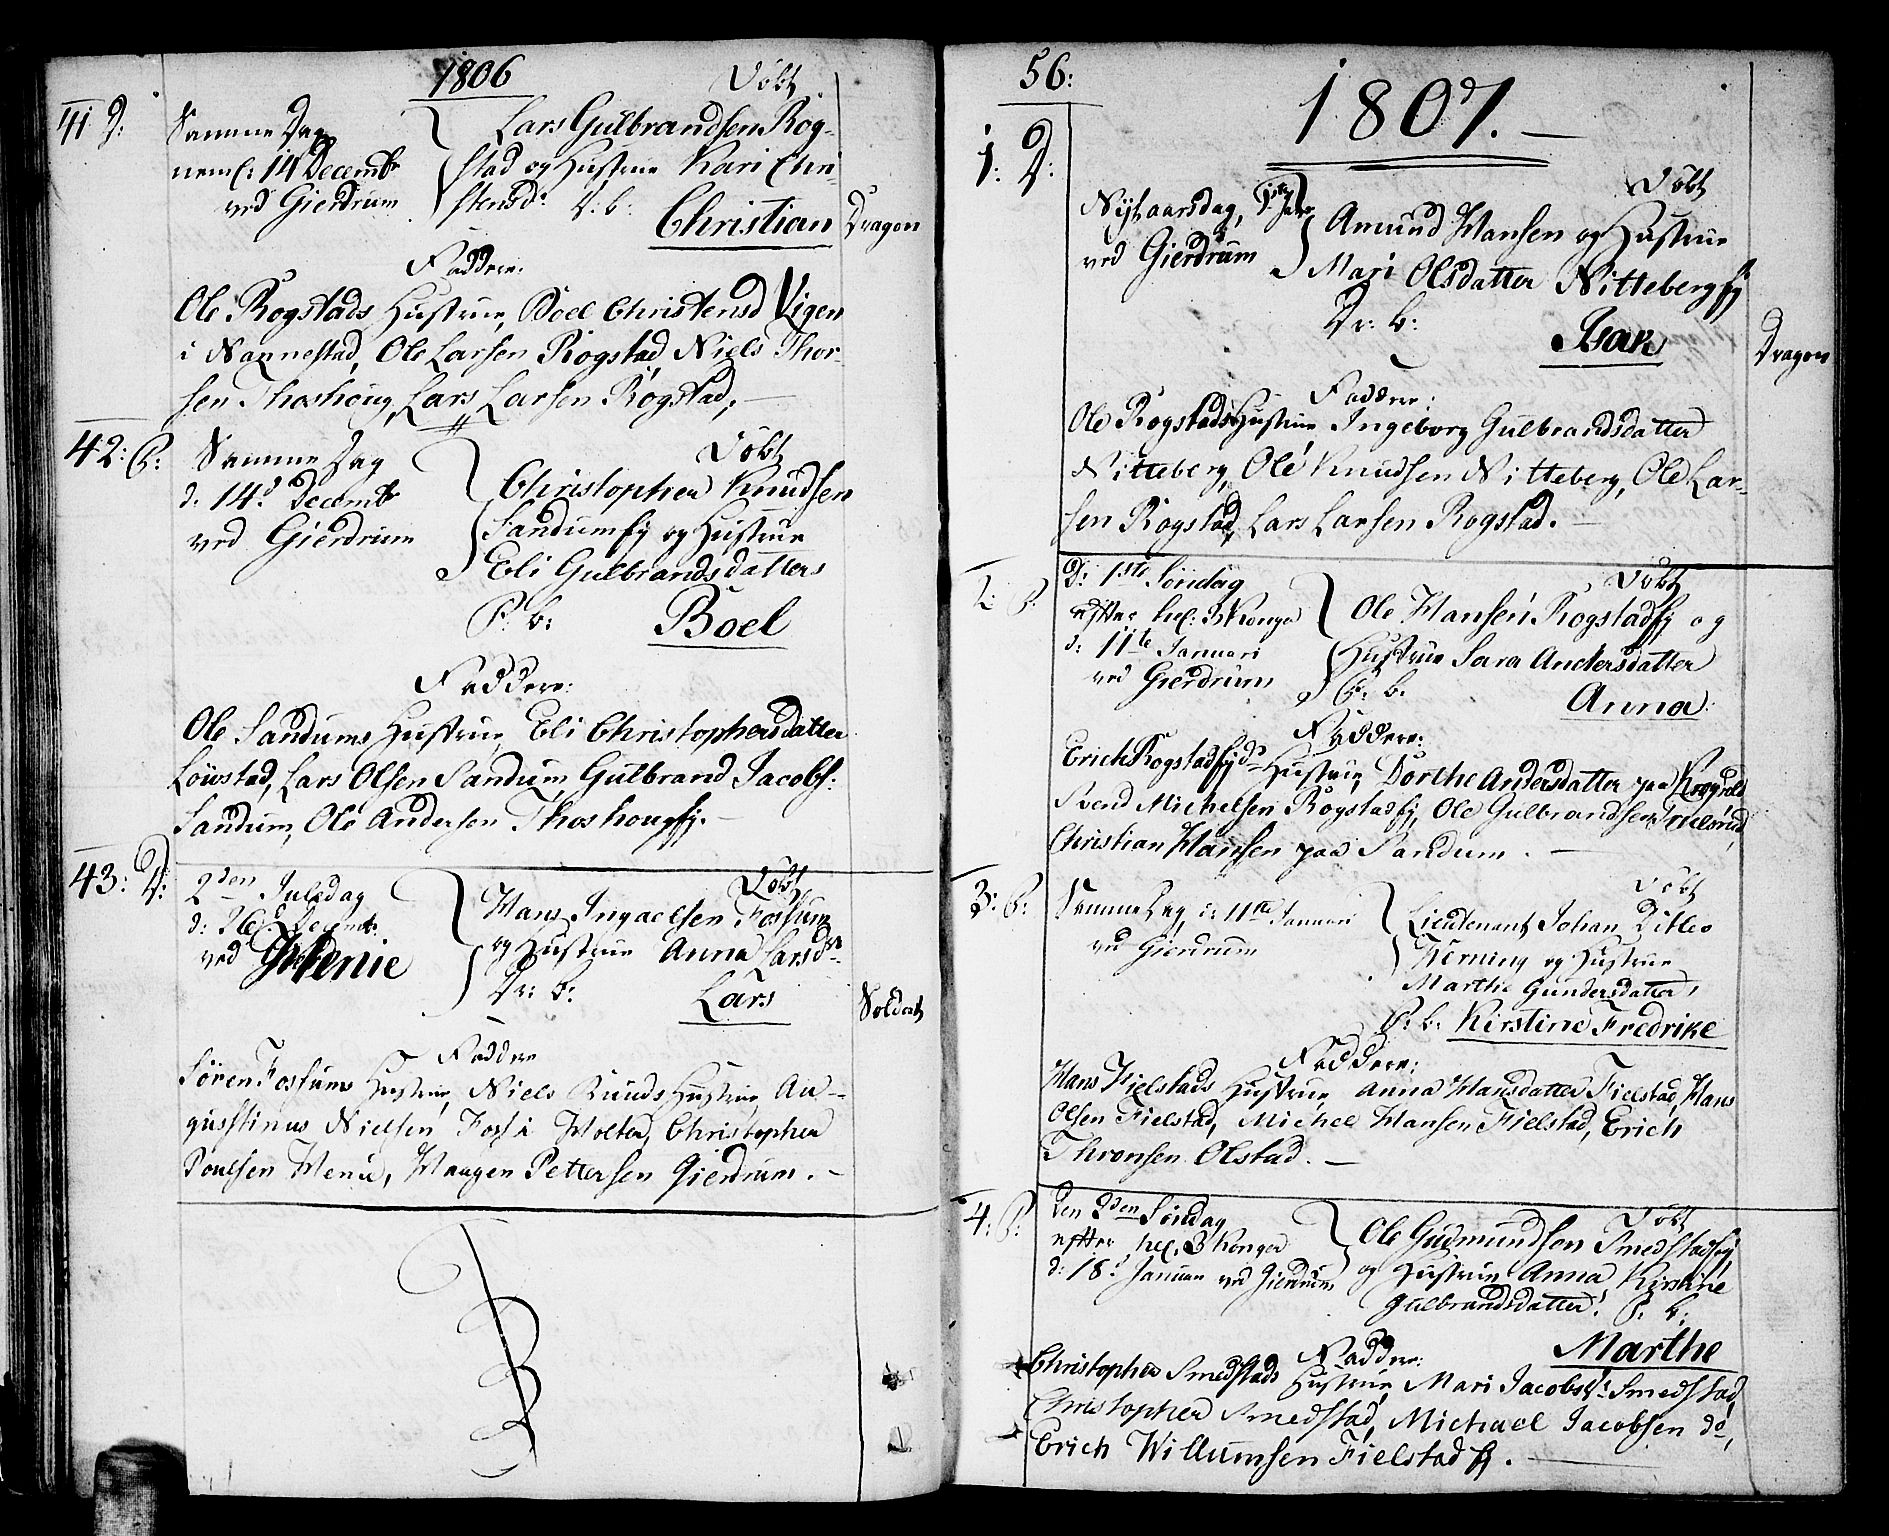 1806
Döbt
41 D: Samme Dag
neml: 14 Decembr
ved Gierdrum
Lars Gulbrandsen Rog-
stad og Hustrue Kari Chri-
stensdr D: b:
Christian
Dragon
Faddere:
Ole Rogstads Hustrue, Boel Christensd Vigen
i Nannestad, Ole Larsen Rogstad, Niels Thor-
sen Thoshoug, Lars Larsen Rogstad,
42: P: Samme Dag
d: 14d Decembr
ved Gierdrum
Döbt
Christopher Knudsen
Sandumey og Hustrue
Eli Gulbrandsdatter
P: b:
Boel
Faddere:
Ole Sandums Hustrue, Eli Christophersdatter
Löwstad, Lars Olsen Sandum, Gulbrand Jacobs:
Sandum, Ole Andersen Thoshougey.
43: D: 2den Juledag
d: 26 Decembr:
ved Henie
Döbt
Hans Ingaelsen Fossum
og Hustrue Anna Larsdr
Dr: b:
Lars
Soldat
Faddere
Sören Fossums Hustrue, Niels Ruuds Hustrue, Au-
gustinus Nielsen Foss i Holter, Christopher
Poulsen Henie, Haagen Pettersen Gierdrum.
56:
1807.
1: D:
Nytaarsdag, 1ste Janr
ved Gierdrum
Döbt
Amund Hansen og Hustrue
Mari Olsdatter Nittebergey
Dr: b:
Isak
Dragon
Faddere:
Ole Rogstads Hustrue Ingeborg Gulbrandsdatter
Nitteberg, Ole Knudsen Nitteberg, Ole Lar-
sen Rogstad, Lars Larsen Rogstad.
2: P: D: 1ste Söndag
efter hel: 3 Konger
d: 11te Januari
ved Gierdrum
Döbt
Ole Hansen Rogstadey og
Hustrue Sara Andersdatter
P: b:
Anna
Faddere:
Erich Rogstadeyds Hustrue, Dorthe Andersdatter paa
Svend Michelsen Rogstadey, Ole Gulbrandsen
Christian Hansen paa Sandum.
3: P: Samme Dag, d: 11te Januari
ved Gierdrum
Döbt
Lieutenant Johan Ditlev
Werning og Hustrue
Marthe Gundersdatter,
P: b: Kirstine Fredrike
Faddere:
Hans Fielstads Hustrue, Anna Hansdatter Fielstad, Hans
Olsen Fielstad, Michel Hansen Fielstad, Erich
Thronsen Olstad.
4: P: Den 2den Söndag
efter hel. 3 Konger
d: 18d Januari ved Gierdrum
Döbt
Ole Gudmundsen Smedstadey
og Hustrue Anna Kirstine
Gulbrandsdatter: P: b:
Marthe
Faddere:
Christopher Smedstads Hustrue, Mari Jacobsdr Smedstad,
Christopher Smedstad, Michael Jacobsen do,
Erich Willumsen Fielstadey.